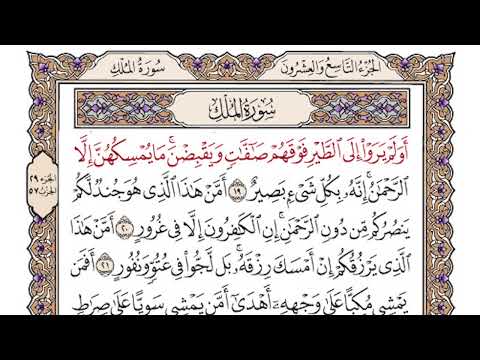 الجُزءُ التَّاسِعُ وَالعِشْرُونَ
سُورَةُ المُلْكِ
سُورَةُ المُلْكِ
أَوَلَمْ يَرَوْا۟ إِلَى ٱلطَّيْرِ فَوْقَهُمْ صَٰٓفَّٰتٍ وَيَقْبِضْنَ ۚ مَا يُمْسِكُهُنَّ إِلَّا
ٱلرَّحْمَٰنُ ۚ إِنَّهُۥ بِكُلِّ شَىْءٍۭ بَصِيرٌ ١٩ أَمَّنْ هَٰذَا ٱلَّذِى هُوَ جُندٌ لَّكُمْ
يَنصُرُكُم مِّن دُونِ ٱلرَّحْمَٰنِ ۚ إِنِ ٱلْكَٰفِرُونَ إِلَّا فِى غُرُورٍ ٢٠ أَمَّنْ هَٰذَا
ٱلَّذِى يَرْزُقُكُمْ إِنْ أَمْسَكَ رِزْقَهُۥ ۚ بَل لَّجُّوا۟ فِى عُتُوٍّ وَنُفُورٍ ٢١ أَفَمَن
يَمْشِى مُكِبًّا عَلَىٰ وَجْهِهِۦٓ أَهْدَىٰٓ أَمَّن يَمْشِى سَوِيًّا عَلَىٰ صِرَٰطٍ
الجزء ٢٩
الحزب ٥٧